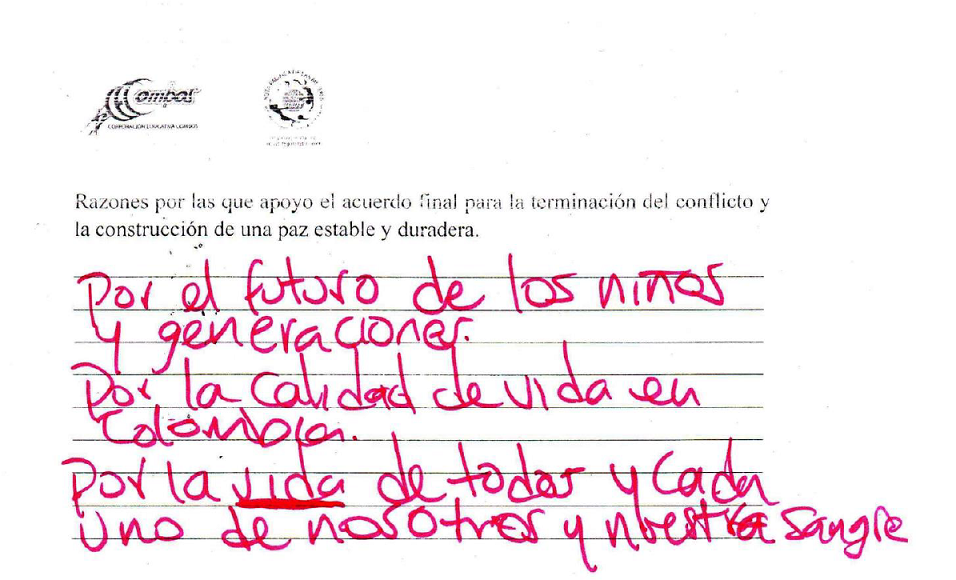 Combos
CORPORACIÓN EDUCATIVA COMBOS
Razones por las que apoyo el acuerdo final para la terminación del conflicto y
la construcción de una paz estable y duradera.
Por el futuro de los niños
y generaciones.
Por la calidad de vida en
Colombia.
Por la vida de todos y cada
uno de nosotros y nuestra sangre